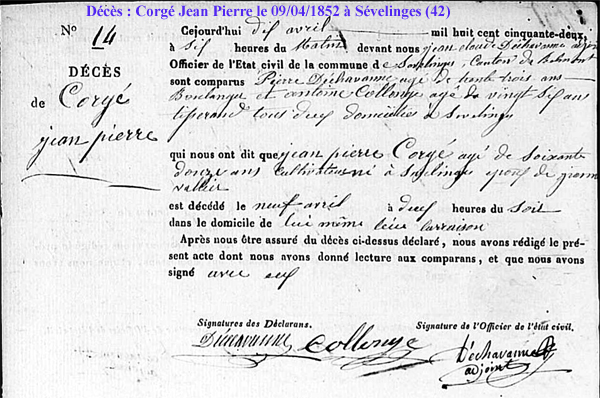 Décès : Corgé Jean Pierre le 09/04/1852 à Sévelinges (42)
No 14
DÉCÈS
de Corgé
jean pierre
Cejourd'hui dix avril mil huit cent cinquante-deux,
à six heures du Matin devant nous jean claude Déchavanne adjoint
Officier de l'État civil de la commune de Sevelinges, Canton de Belmont
sont comparus Pierre Déchavanne agé de trente trois ans
Boulanger et antoine Collonge agé de vingt six ans
tisserand tous deux domiciliés à Sevelinges
qui nous ont dit que jean pierre Corgé agé de soixante
douze ans Cultivateur né à Sevelinges époux de
vallier
est décédé le neuf avril à deux heures du soir
dans le domicile de lui même
Après nous être assuré du décès ci-dessus déclaré, nous avons rédigé le pré-
sent acte dont nous avons donné lecture aux comparans, et que nous avons
signé avec eux
Signatures des Déclarans. Signature de l'Officier de l'état civil.
Déchavanne Collonge Déchavanne
adjoint